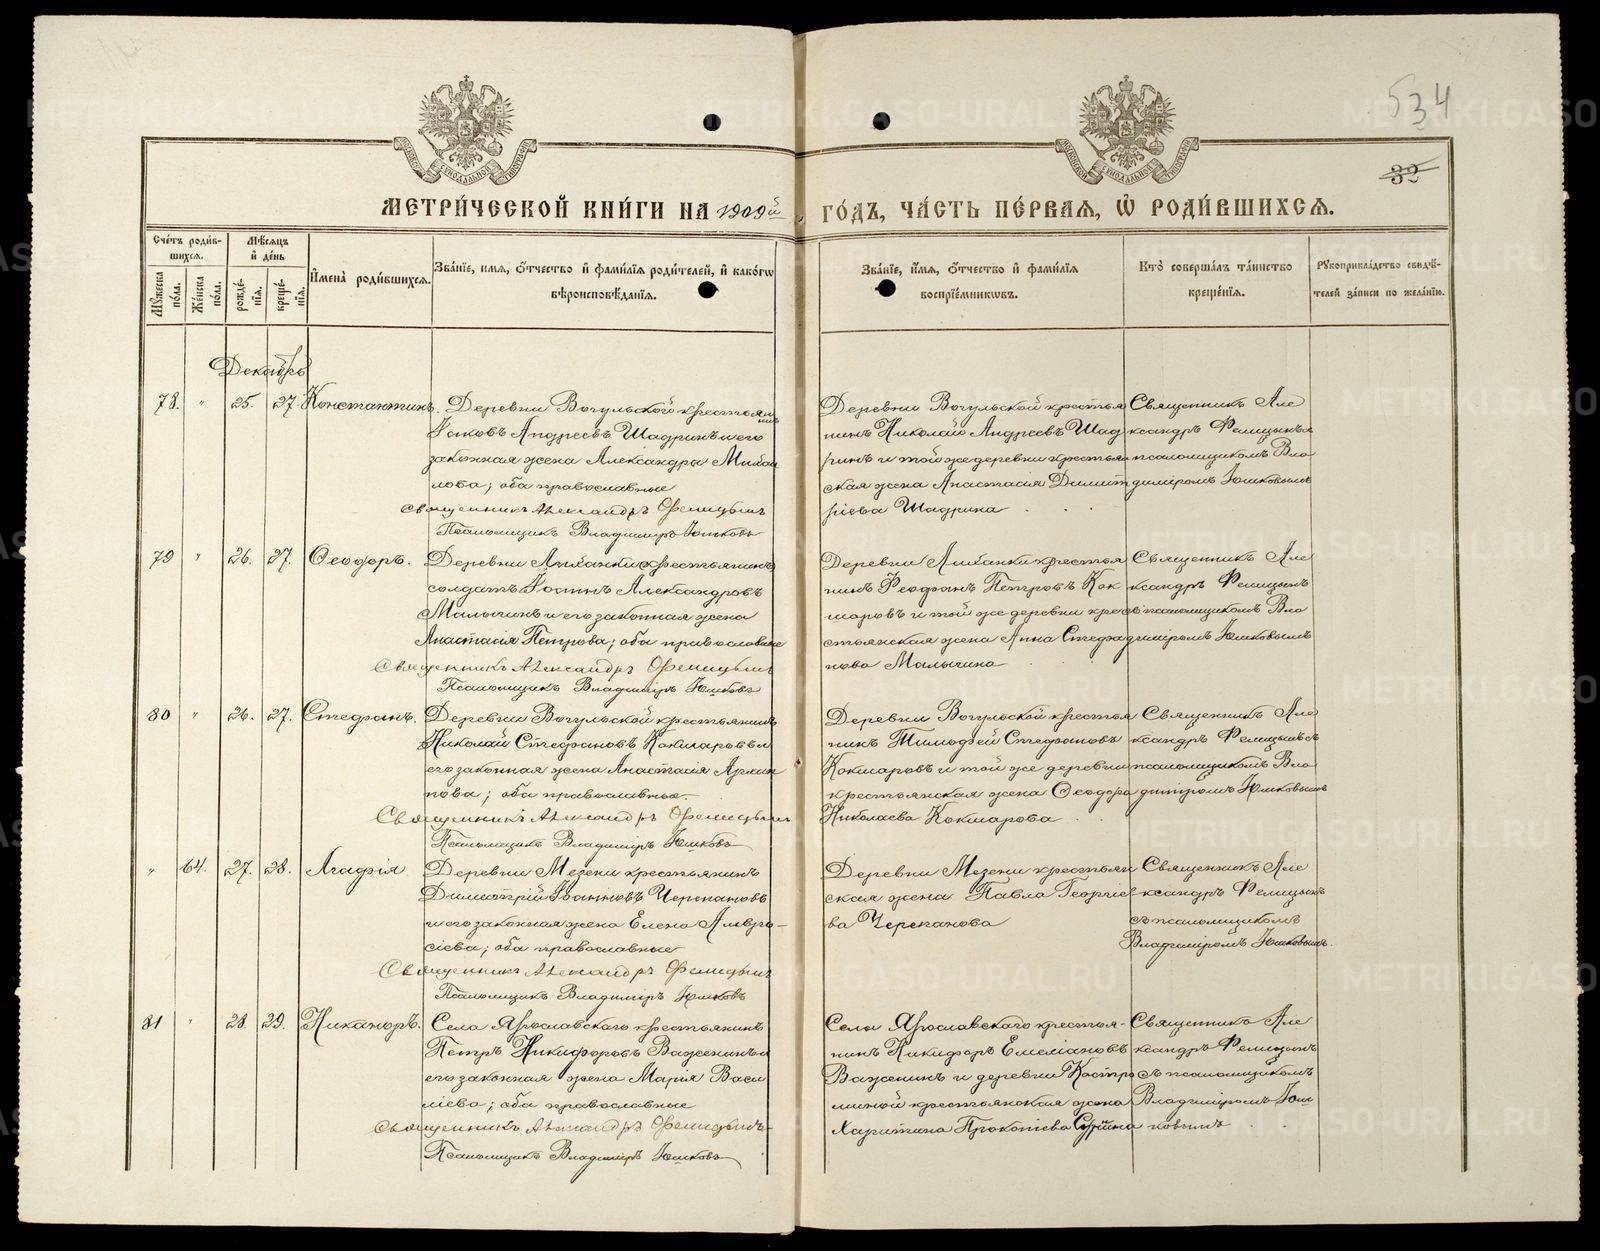 534
32
МЕТРИ́ЧЕСКОЙ КНИ́ГИ НА 1909й ГО́ДЪ, ЧА́СТЬ ПЕ́РВАЯ, Ѡ РОДИ́ВШИХСЯ.
Сче́тъ роди́в-
шихся.
Мꙋжеска по́ла.
Же́нска по́ла.
Мѣ́сяцъ
и҆ де́нь
рожде́-
нїя.
креще́-
нїя.
И҆мена̀ роди́вшихся.
Зва́нїе, и҆мя, ѻ҆́тчество и҆ фами́лїя роди́телей, и҆ како́гѡ
вѣроисповѣ́данїя.
Зва́нїе, и҆́мя, ѻ҆́тчество и҆ фами́лїя
воспрїе́мникѡвъ.
Кто̀ соверша́лъ та́инство
креще́нїя.
Рꙋкоприкла́дство свидѣ́-
телей за́писи по жела́нїю.
Декабрь
78. " 25. 27. Константинъ.
Деревни Вогульской крестьянинъ
Іаковъ Андреевъ Шадринъ и его
законная жена Александра Михаи
лова; оба православные
Священникъ Александръ Фелицынъ
Псаломщикъ Владиміръ Юшковъ
Деревни Вогульской крестья
нинъ Николай Андреевъ Шад
ринъ и той же деревни крестьян
ская жена Анастасія Димит
ріева Шадрина
Священникъ Але
ксандръ Фелицынъ
псаломщикомъ Вла
диміромъ Юшковымъ
79 " 26. 27. Ѳеодоръ.
Деревни крестьянинъ
солдатъ Іоаннъ Александровъ
Малыгинъ и его законная жена
Анастасія Петрова; оба православные
Священникъ Александръ Фелицынъ
Псаломщикъ Владиміръ Юшковъ
Деревни крестья
нинъ Феофанъ Петровъ Кок
шаровъ и той же деревни кре
стьянская жена Анна Стефа
нова Малыгина
Священникъ Але
ксандръ Фелицынъ
съ псаломщикомъ Вла
диміромъ Юшковымъ
80 " 26. 27. Стефанъ.
Деревни Вогульской крестьянинъ
Николай Стефановъ Кокшаровъ и
его законная жена Анастасія
оба православные.
Священникъ Александръ Фелицынъ
Псаломщикъ Владиміръ Юшковъ
Деревни Вогульской крестья
нинъ Тимофей Стефановъ
Кокшаровъ и той же деревни
крестьянская жена Ѳеодора
Николаева Кокшарова
Священникъ Але
ксандръ Фелицынъ съ
псаломщикомъ Вла
диміромъ Юшковымъ
" 64. 27. 28. Агафія.
Деревни Мезени крестьянинъ
Димитрій Іоанновъ Черепановъ
и его законная жена Елена
оба православные
Священникъ Александръ Фелицынъ
Псаломщикъ Владиміръ Юшковъ
Деревни Мезени крестьян
ская жена Павла Георгіе
ва Черепанова
Священникъ Але
ксандръ Фелицынъ
съ псаломщикомъ
Владиміромъ Юшковымъ.
81 " 28. 29. Никаноръ.
Села Ярославскаго крестьянинъ
Петръ Никифоровъ Важенинъ и
его законная жена Марія Васи
ліева; оба православные
Священникъ Александръ Фелицынъ
Псаломщикъ Владиміръ Юшковъ
Села Ярославскаго крестья-
нинъ Никифоръ Емеліановъ
Важенинъ и деревни Костро
миной крестьянская жена
Харитина Прокопева
Священникъ Але
ксандръ Фелицынъ
съ псаломщикомъ
Владиміромъ Юш
ковымъ
METRIKI.GASO-URAL.RU